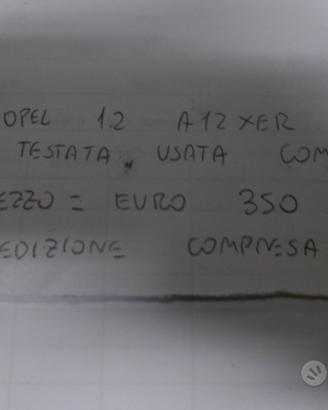 OPEL 1.2 A12XER
TESTATA USATA COM
EZZO = EURO 350
EDIZIONE COMPRESA